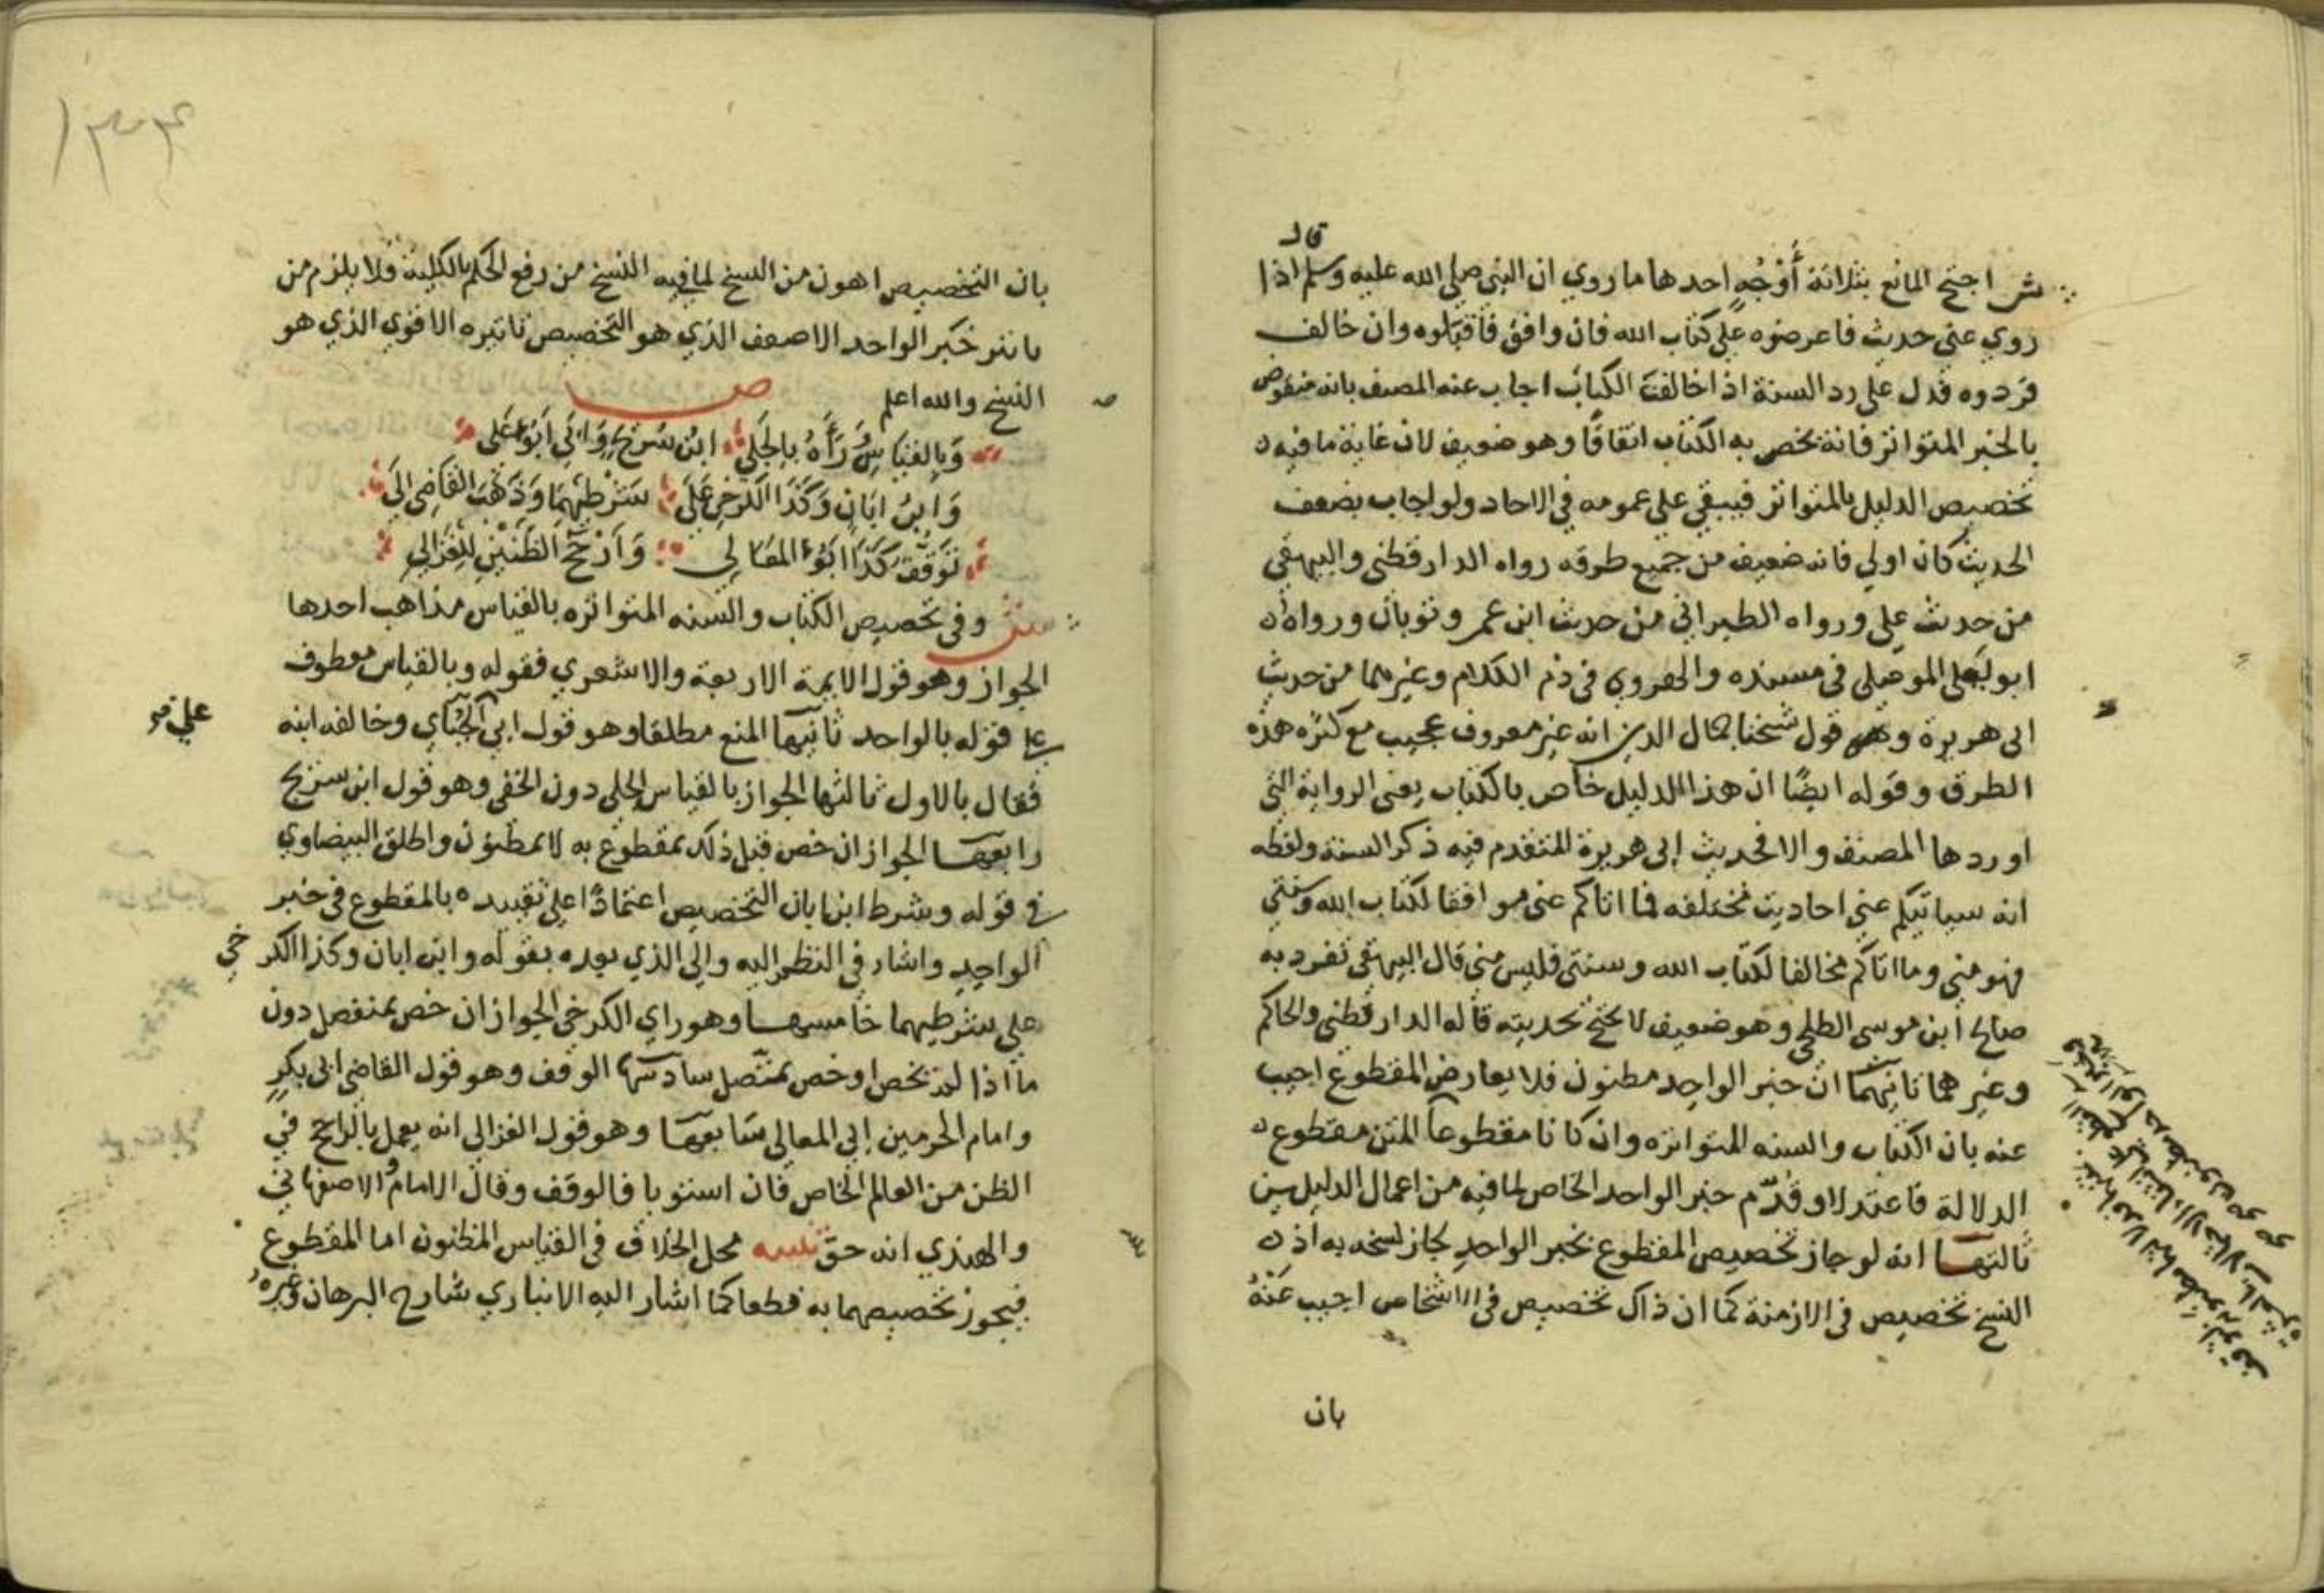 قال
ش احتج المانع بثلاثة أَوْجُهٍ احدها ما روي ان النبي صلى الله عليه وسلم اذا
روي عني حديث فاعرضوه على كتاب الله فان وافق فاقبلوه وان خالف
فردوه فدل على رد السنة اذا خالفت الكتاب اجاب عنه المصنف بانه منقوض
بالخبر المتواتر فانه يخص به الكتاب اتفاقًا وهو ضعيف لان غاية ما فيه
تخصيص الدليل بالمتواتر فيبقي على عمومه في الاحاد ولو اجاب بضعف
الحديث كان اولي فانه ضعيف من جميع طرقه رواه الدارقطني والبيهقي
من حديث علي ورواه الطبراني من حديث ابن عمر وثوبان ورواه
ابو يعلى الموصلي في مسنده والهروي في ذم الكلام وغيرهما من حديث
ابي هريرة وهو قول شيخنا جمال الدين انه غير معروف عجيب مع كثرة هذه
الطرق وقوله ايضًا ان هذا الدليل خاص بالكتاب يعني الرواية التي
اوردها المصنف والا فحديث ابي هريرة المتقدم فيه ذكر السنة ولفظه
انه سياتيكم عني احاديث مختلفه فما اتاكم عني موافقا لكتاب الله وسنتي
فهو مني وما اتاكم مخالفا لكتاب الله وسنتي فليس مني قال البيهقي تفرد به
صالح ابن موسى الطلحي وهو ضعيف لا يحتج بحديثه قاله الدارقطني والحاكم
وغيرهما ثانيهما ان خبر الواحد مظنون فلا يعارض المقطوع اجيب
عنه بان الكتاب والسنه المتواتره وان كانا مقطوعا المتن مقطوع
الدلالة فاعتدلا وقُدّم خبر الواحد الخاص لما فيه من اعمال الدليلين
ثالثها انه لو جاز تخصيص المقطوع بخبر الواحد لجاز نسخه به اذ
النسخ تخصيص في الازمنة كما ان ذاك تخصيص في الاشخاص اجيب عَنْهُ
بان
١٣٤
بان التخصيص اهون من النسخ لما فيه النسخ من رفع الحكم بالكلية فلا يلزم من
تاثير خبر الواحد الاضعف الذي هو التخصيص تاثيره الاقوي الذي هو
النسخ والله اعلم ص
وَبِالقِيَاسِ رَأَهُ بِالجَلِي ابْن سُرَيْجٍ وَابَي اَبُو عَلى
وَابنُ ابَانٍ وَكَذَا الكَرخِي عَلَى شَرْطِهِمَا وَذَهَبَ القَاضِي الَى
تَوَقُّف كَذَا ابُو المعَالِي وَارْجَحَ الظَنَّيْنِ لِلغَزالِي
ش وفي تخصيص الكتاب والسنه المتواتره بالقياس مذاهب احدها
الجواز وهو قول الايمة الاربعة والاشعري فقوله وبالقياس معطوف
على قوله بالواحد ثانيها المنع مطلقا وهو قول ابي علي الجُبّاي وخالفه ابنه
فقال بالاول ثالثها الجواز بالقياس الجلي دون الخفي وهو قول ابن سريج
رابعها الجواز ان خص قبل ذلك بمقطوع به لا بمظنون واطلق البيضاوي
في قوله وشرط ابن ابان التخصيص اعتمادًا على تقييده بالمقطوع في خبر
الواحد واشار في النظم اليه والي الذي بعده بقوله وابن ابان وكذا الكرخي
على شرطيهما خامسها وهو راي الكرخي الجواز ان خص بمنفصل دون
ما اذا لم يخص او خص بمتصل سادسها الوقف وهو قول القاضي ابي بكرٍ
وامام الحرمين ابي المعالي سَابعها وهو قول الغزالي انه يعمل بالراجح في
الظن من العام الخاص فان استويا فالوقف وقال الامام والاصفهاني
والهندي انه حق تنبيه محل الخلاف في القياس المظنون اما المقطوع
فيجوز تخصيصهما به قطعا كما اشار اليه الانباري شارح البرهان وغيره